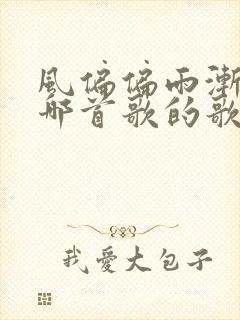 風偏偏雨漸
那首歌的歌
我愛大包子